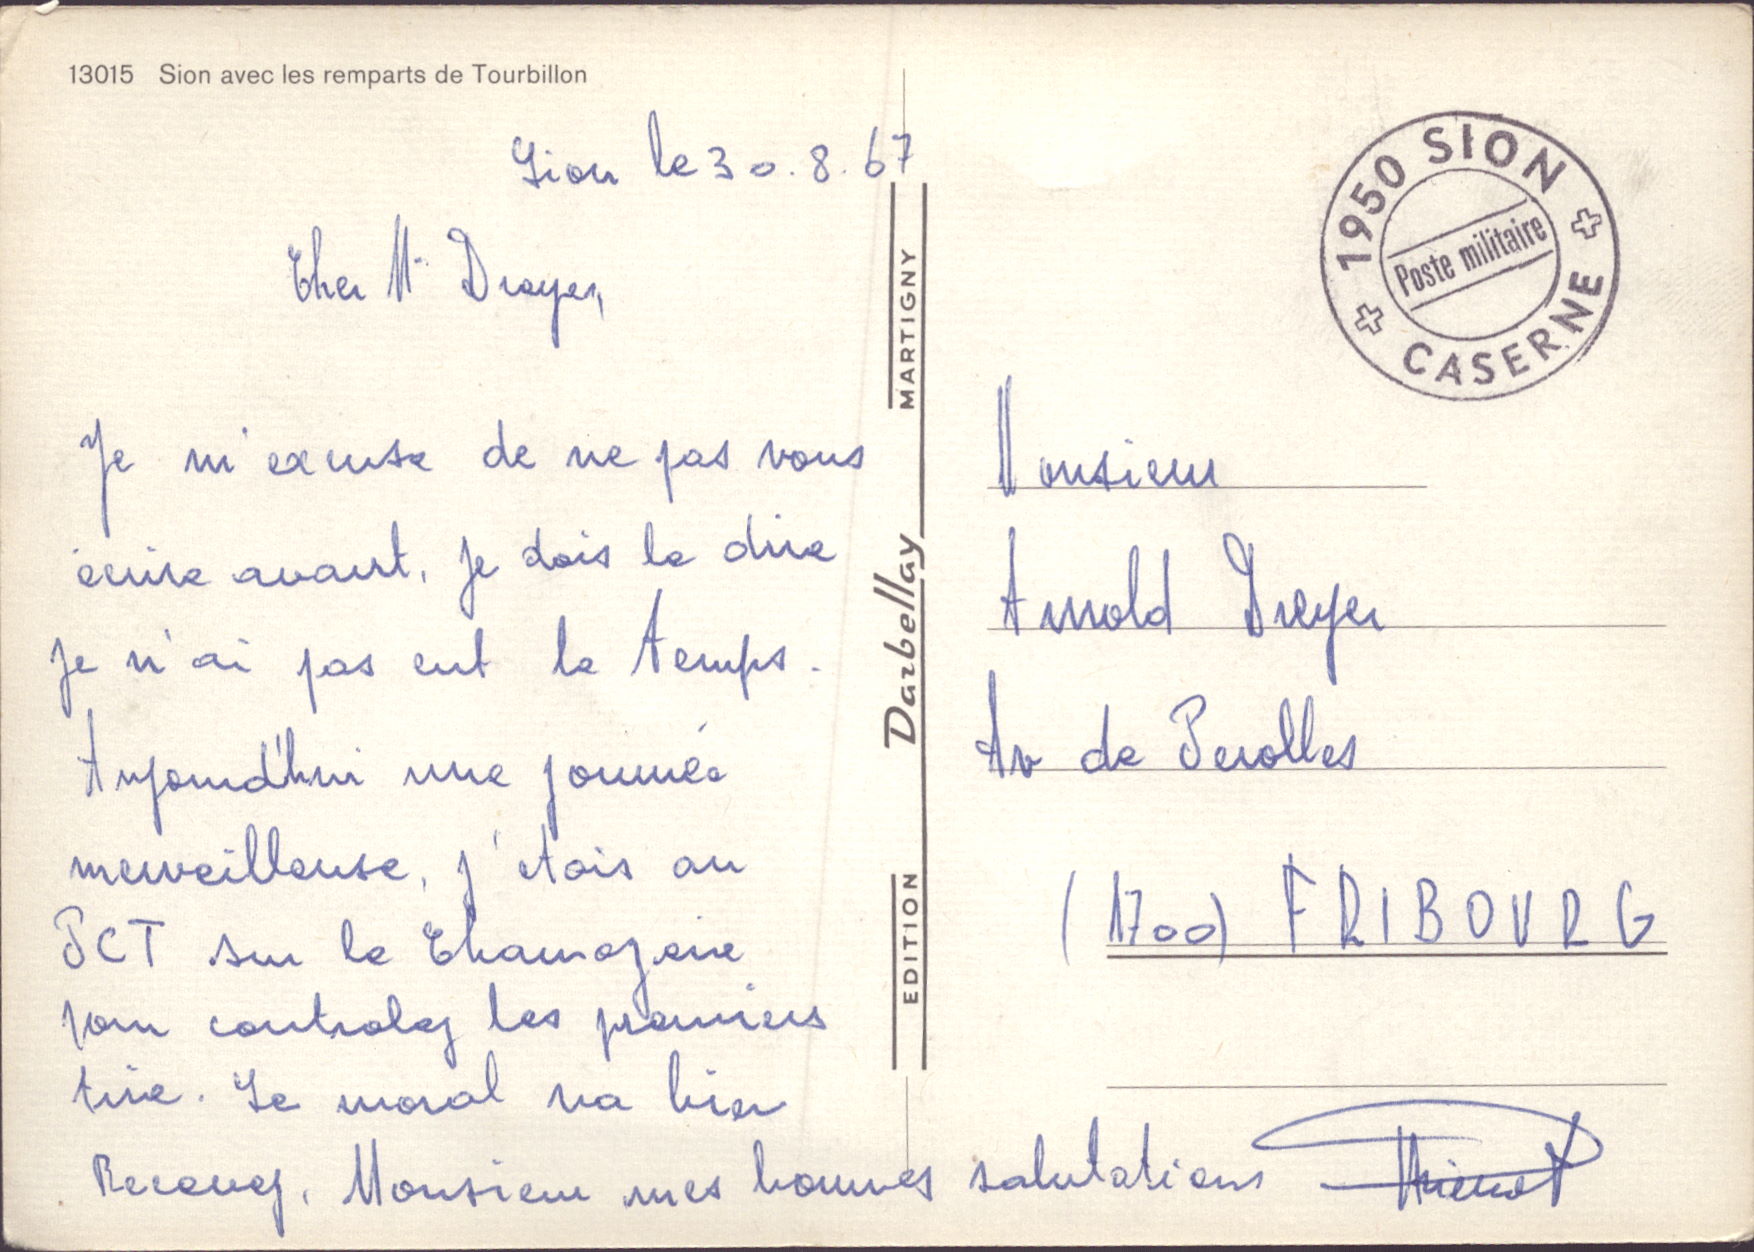 13015 Sion avec les remparts de Tourbillon
Sion le 30.8.67
Cher Mr Dreyer,
Je m'excuse de ne pas vous
écrire avant, je dois le dire
je n'ai pas eut le temps.
Aujourd'hui une journée
merveilleuse, j'etais au
PCT sur le Chamozaire
pour controlez les premiers
tire. Le moral va bien
Recevez, Monsieur mes bonnes salutations
EDITION Darbellay MARTIGNY
1950 SION
Poste militaire
CASERNE
Monsieur
Arnold Dreyer
Av de Perolles
(1700) FRIBOURG